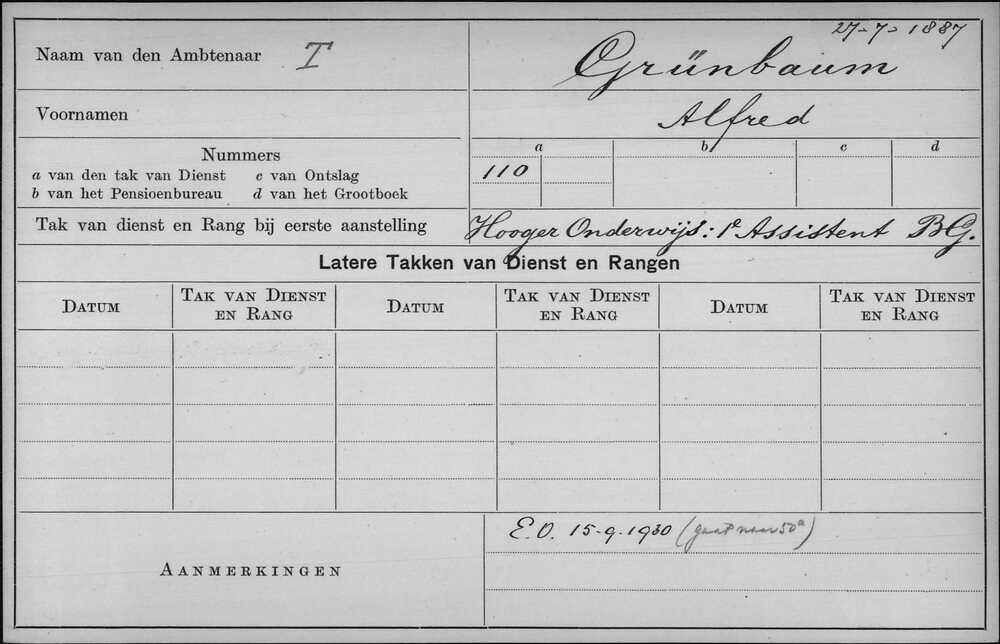 27-7-1887
Naam van den Ambtenaar T Grünbaum
Voornamen Alfred
Nummers
a van den tak van Dienst c van Ontslag
b van het Pensioenbureau d van het Grootboek
a b c d
110
Tak van dienst en Rang bij eerste aanstelling Hooger Onderwijs: 1e Assistent BG.
Latere Takken van Dienst en Rangen
DATUM TAK VAN DIENST EN RANG DATUM TAK VAN DIENST EN RANG DATUM TAK VAN DIENST EN RANG
E.O. 15-9-1930 (gaat naar 50a)
AANMERKINGEN